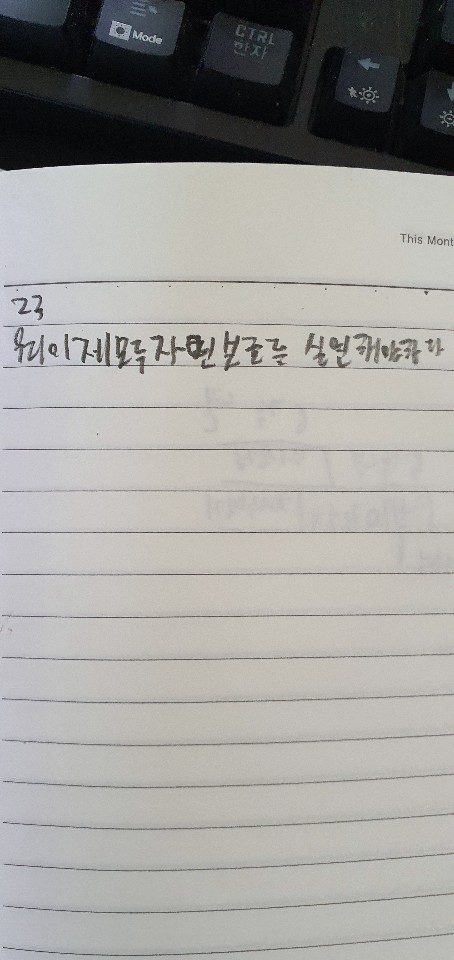 Mode
CTRL
한자
This Mont
23
우리 이제 모두 자연보호를 실현해야하다